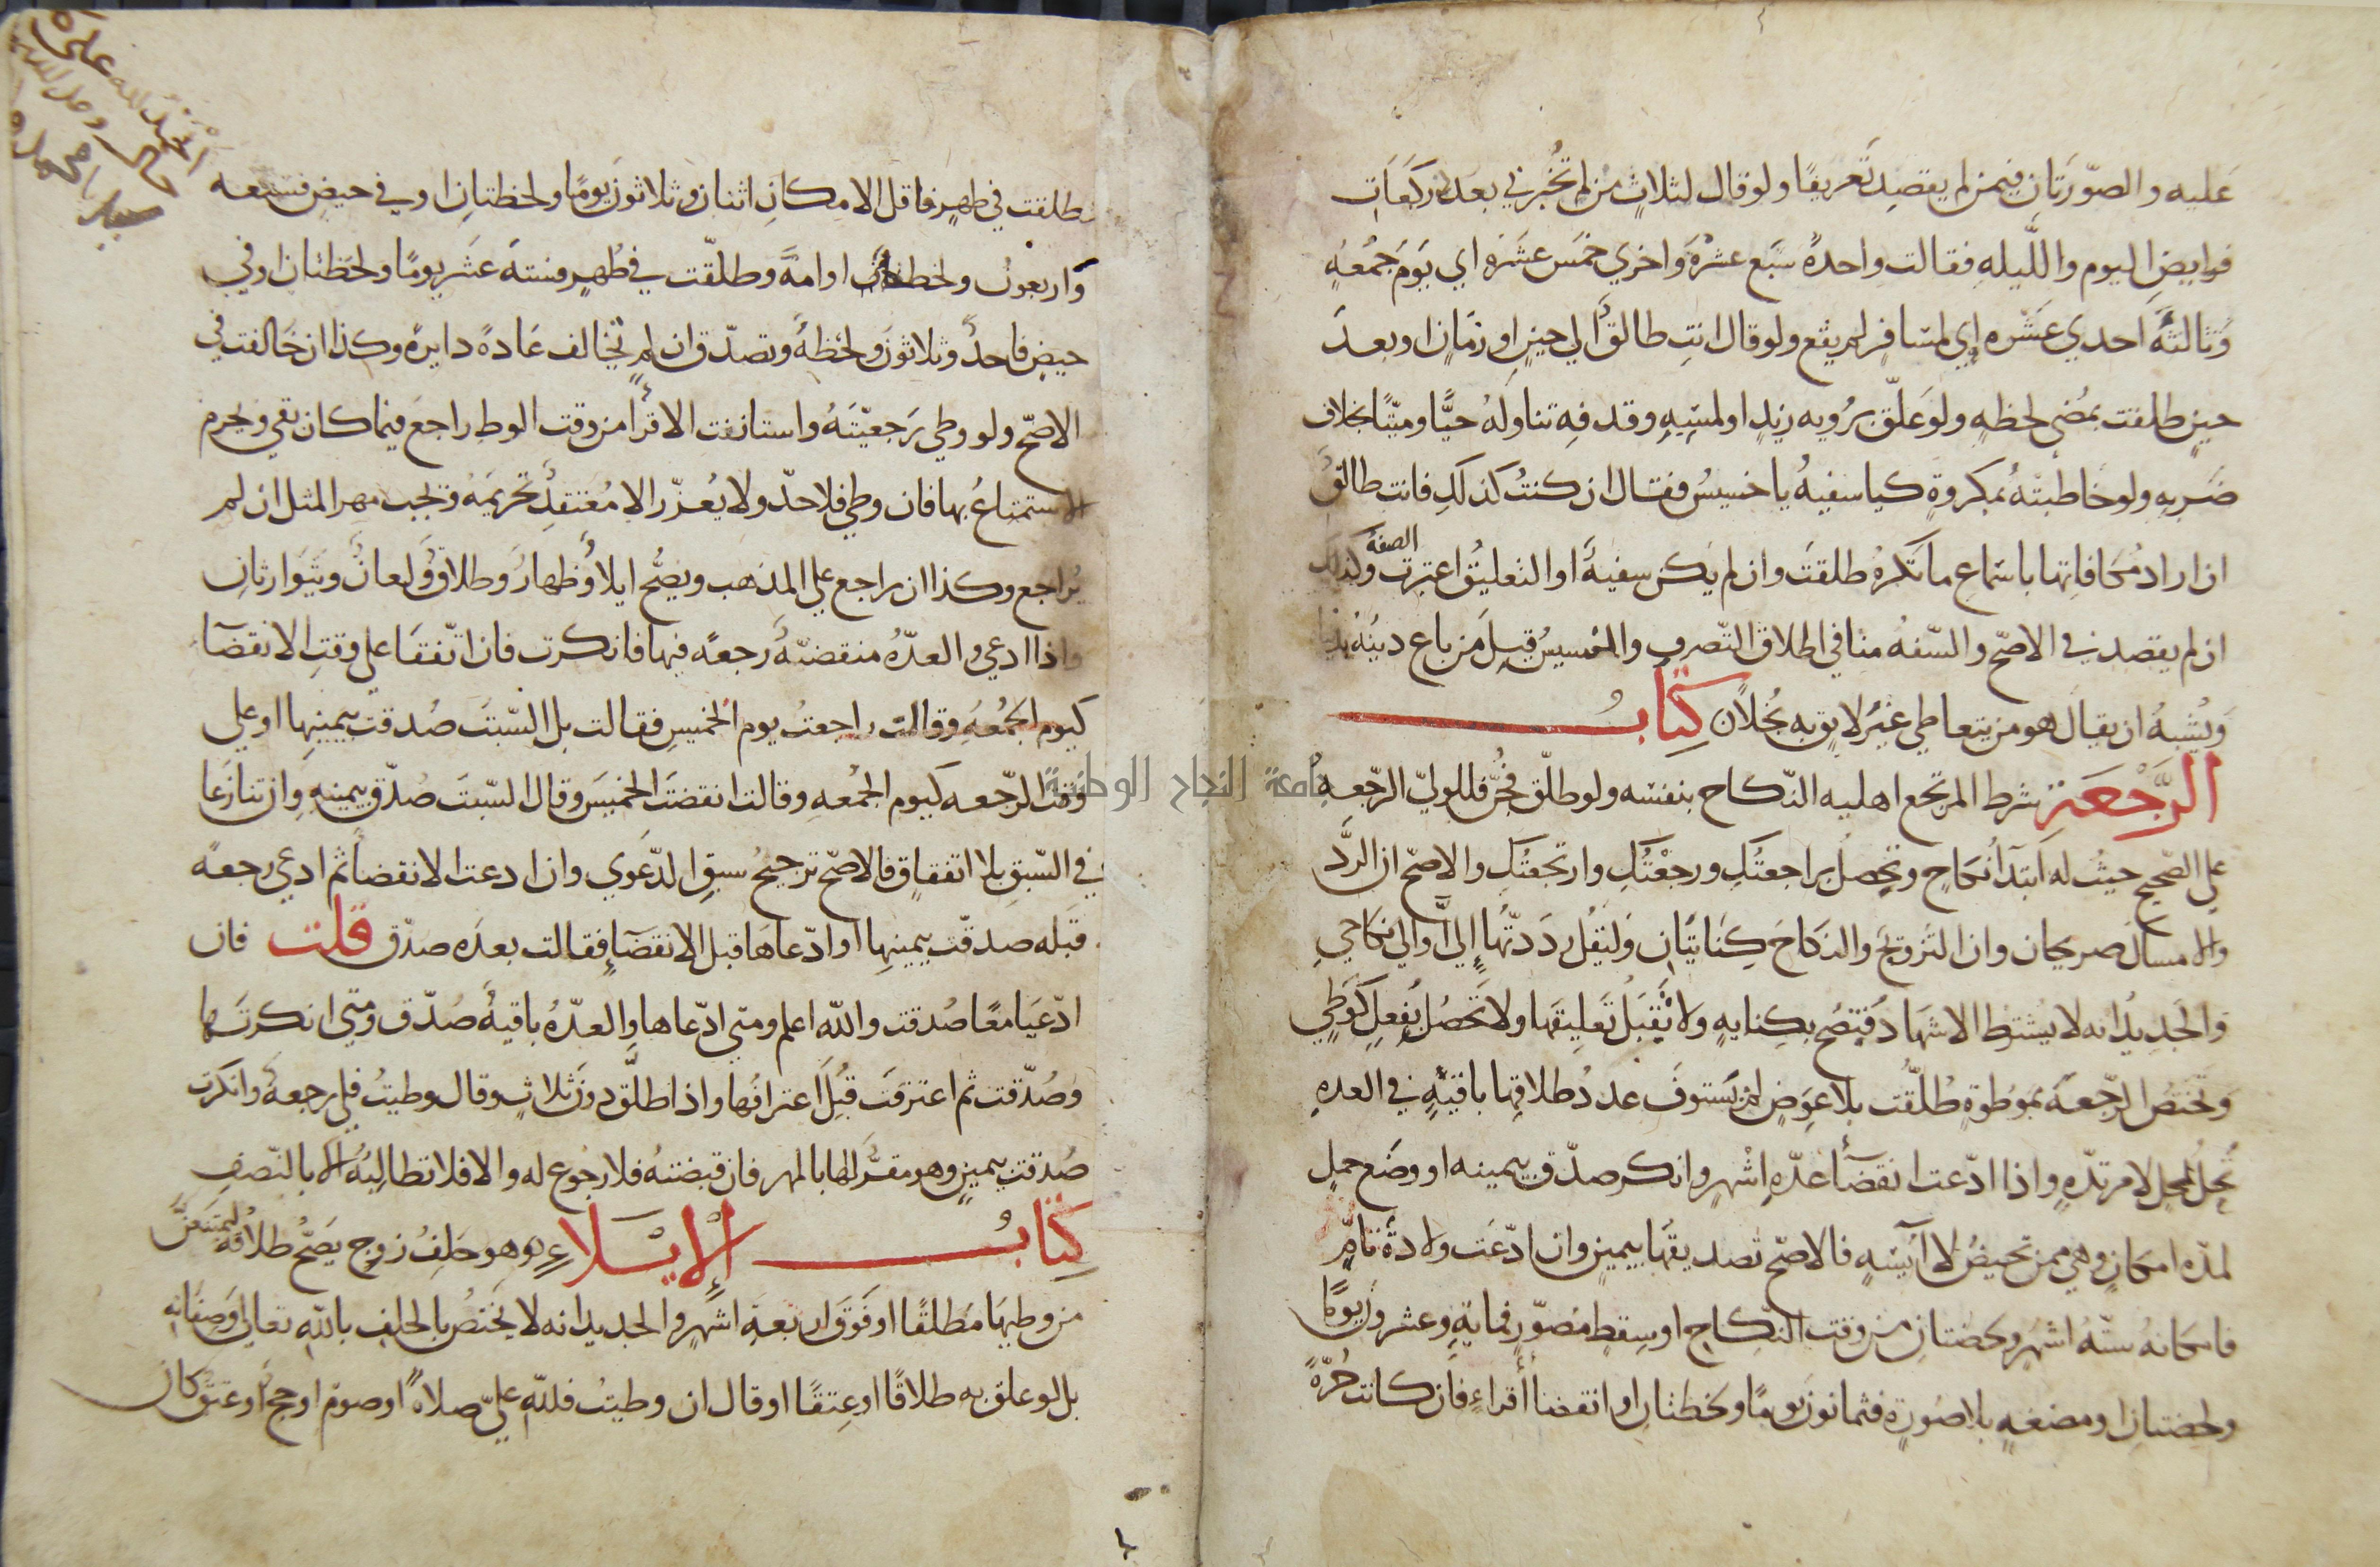 عليه والصّورتان فيمن لم يقصد تعريفًا ولو قال لثلاث من لم تخبرني بعدد ركعات
فرايض اليوم والليله فقالت واحدة سبع عشرة واخري خمس عشره اي يوم جمعه
وثالثة احدي عشره اي لمسافر لم يقع ولو قال انت طالق الي حين او زمان او بعد
حين طلقت بمضي لحظه ولو علّق برويه زيد او لمسه وقدفه تناوله حيًّا وميتًا بخلاف
ضربه ولو خاطبته بمكروة كيا سفيه يا خسيس فقال ان كنت كذلك فانت طالق
ان اراد مكافاتها باسماع ما تكره طلقت وان لم يكن سفيه او التعليق اعتبرت الصفة وكذلك
ان لم يقصد في الاصحّ والسّفه منافي اطلاق التّصرف والخسيس قيل من باع دينه بدنيا
ويشبه ان يقال هو من يتعاطي غير لايق به بخلاً كتاب
الرَّجْعَة شرط المرتجع اهليه النّكاح بنفسه ولو طلّق فجنّ فللوليّ الرّجعه
علي الصّحيح حيث له ابتدأ نكاح وتحصل براجعتك ورجعتك وارتجعتك والاصحّ ان الردَّ
والامساك صريحان وان التزويج والنكاح كنايتان وليقل رددتّها إليّ او الي نكاحي
والجديد انه لا يشترط الاشهاد فتصح بكنايه ولا تقبل تعليقها ولا تحصل بفعل كوطي
وتختص الرّجعة بموطوة طُلّقت بلا عوض لم يستوف عدد طلاقها باقية في العده
محل لحل لا مرتدّه واذا ادّعت انقضآ عدّه اشهر وانكر صدّق بيمينه او وضع حمل
لمدّه امكان وهي ممن تحيض لا آئيسه فالاصحّ تصديقها بيمين وان ادّعت ولادة تامّ
فامكانه ستّه اشهر ولحضتان من وقت النّكاح او سقط مصوّر فماية وعشرون يومًا
ولحضتان او مضغه بلا صورة فثمانون يومًا ولحظتان او انقضا أقراء فان كانت حُرّةً
وطلقت في طهر فاقل الامكان اثنان وثلاثون يومًا ولحظتان او في حيض فسبعه
واربعون ولحظة او امة وطلّقت في طهر فستة عشر يومًا ولحظتان او في
حيض فاحد وثلاثون ولحظة وتصدّق ان لم تخالف عادة دايرة وكذا ان خالفت في
الاصحّ ولو وطي رجعيّته واستانفت الاقرأ من وقت الوطء راجع فيما كان بقي ويحرم
الاستمتاع بها فان وطي فلا حدّ ولا يُعزّر الا معتقد تحريمه ويجب مهر المثل ان لم
يراجع وكذا ان راجع علي المذهب ويصحّ ايلأ وظهار وطلاق ولعان ويتوارثان
واذا ادعي والعدّه منقضيّة رجعة فيها فانكرت فان اتّفقا علي وقت الانقضآ
كيوم الجمعه وقالت راجعت يوم الخميس فقالت بل السّبت صُدقت بيمينها او علي
وقت الرّجعه كيوم الجمعه وقالت انقضت الخميس وقال السّبت صُدّق بيمينه وان تنازعا
في السّبق بلا اتفقاق فالاصحّ ترجيح سبق الدّعوي وان ادعت الانقضا ثم ادعي رجعة
قبله صدقّت بيمينها او ادّعاها قبل الانقضاء فقالت بعده صدّق قلت فان
ادّعيا معًا صُدقت والله اعلم ومتي ادّعاها والعدّه باقية صُدّق ومتي انكرتها
وصُدّقت ثم اعترفت قُبل اعترافها واذا طلّق دون ثلاث وقال وطيت فلي رجعة وانكرت
صُدقت بيمين وهو مقرّ لها بالمهر فان قبضته فلا رجوع له والا فلا تطالبه الا بالنّصف
كتاب الإيلاء هو حلف زوج يصحّ طلاقه ليمتنعنّ
من وطيها مطلقًا او فوق اربعة اشهر والجديد انه لا يختص بالحلف بالله تعالي وصفاته
بل لو علق به طلاقًا او عتقًا او قال ان وطيت فلله عليّ صلاة او صوم او حج او عتق كان
الحمد لله على